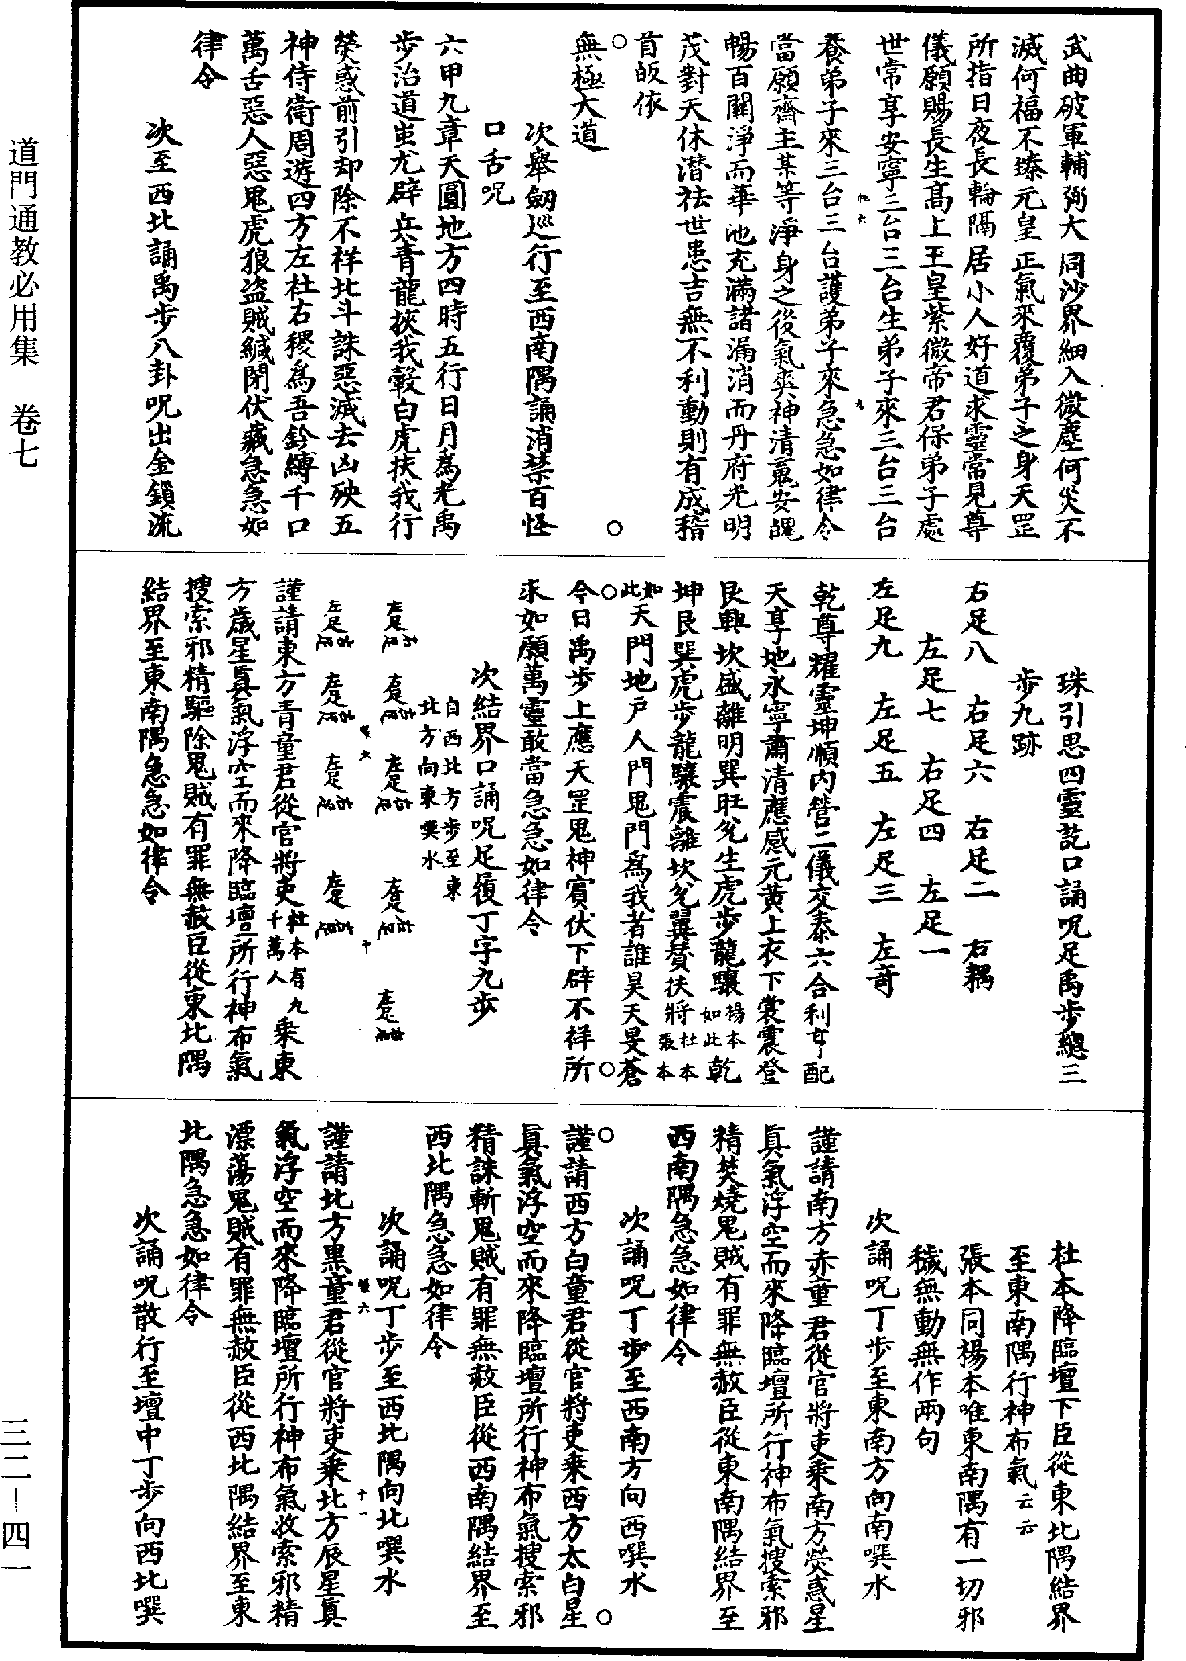 武曲破軍輔弼大周沙界細入微塵何災不
滅何福不臻元皇正氣來覆弟子之身天罡
所指日夜長輪隔居小人好道求靈常見尊
儀願賜長生高上玉皇紫微帝君保弟子處
世常享安寧三台三台生弟子來三台三台
養弟子來三台三台護弟子來急急如律令
當願齋主某等淨身之後氣爽神清裏安魂
暢百關淨而華池充滿諸漏消而丹府光明
茂對天休潛祛世患吉無不利動則有成稽
首皈依
無極大道
次舉劒巡行至西南隅誦消禁百怪
口舌呪
六甲九章天圓地方四時五行日月為光禹
步治道蚩尤辟兵青龍挾我轂白虎扶我行
熒惑前引却除不祥北斗誅惡滅去凶殃五
神侍衛周遊四方左社右稷為吾鈐縛千口
萬舌惡人惡鬼虎狼盜賊緘閉伏藏急急如
律令
次至西北誦禹步八卦呪出金鎖流
珠引思四靈訖口誦呪足禹步總三
步九跡
右足八　右足六　右足二　右耦
左足七　右足四　左足一
左足九　左足五　左足三　左奇
乾尊燿靈坤順內營二儀交泰六合利亨配
天享地永寧肅清應感元黃上衣下裳震登
艮興坎盛離明巽旺兌生虎步龍驤楊本如此乾
坤艮巽虎步龍驤震離坎兌翼贊扶將杜本張本
如此天門地戶人門鬼門為我者誰昊天旻蒼
今日禹步上應天罡鬼神賓伏下辟不祥所
求如願萬靈敢當急急如律令
次結界口誦呪足復丁字九步
自西北方步至東
北方向東噀水
左足右足　左足右足
左足右足　左足右足
左足右足　左足右足
左足右足　左足右足
左足右足
謹請東方青童君從官將吏杜本有九千萬人乘東
方歲星真氣浮空而來降臨壇所行神布氣
搜索邪精驅除鬼賊有罪無赦臣從東北隅
結界至東南隅急急如律令
杜本降臨壇下臣從東北隅結界
至東南隅行神布氣云云
張本同楊本唯東南隅有一切邪
穢無動無作兩句
次誦呪丁步至東南方向南噀水
謹請南方赤童君從官將吏乘南方熒惑星
真氣浮空而來降臨壇所行神布氣搜索邪
精焚燒鬼賊有罪無赦臣從東南隅結界至
西南隅急急如律令
次誦呪丁步至西南方向西噀水
謹請西方白童君從官將吏乘西方太白星
真氣浮空而來降臨壇所行神布氣搜索邪
精誅斬鬼賊有罪無赦臣從西南隅結界至
西北隅急急如律令
次誦呪丁步至西北隅向北噀水
謹請北方黑童君從官將吏乘北方辰星真
氣浮空而來降臨壇所行神布氣收索邪精
漂蕩鬼賊有罪無赦臣從西北隅結界至東
北隅急急如律令
次誦呪散行至壇中丁步向西北噀
道門通教必用集　卷七
三二—四一